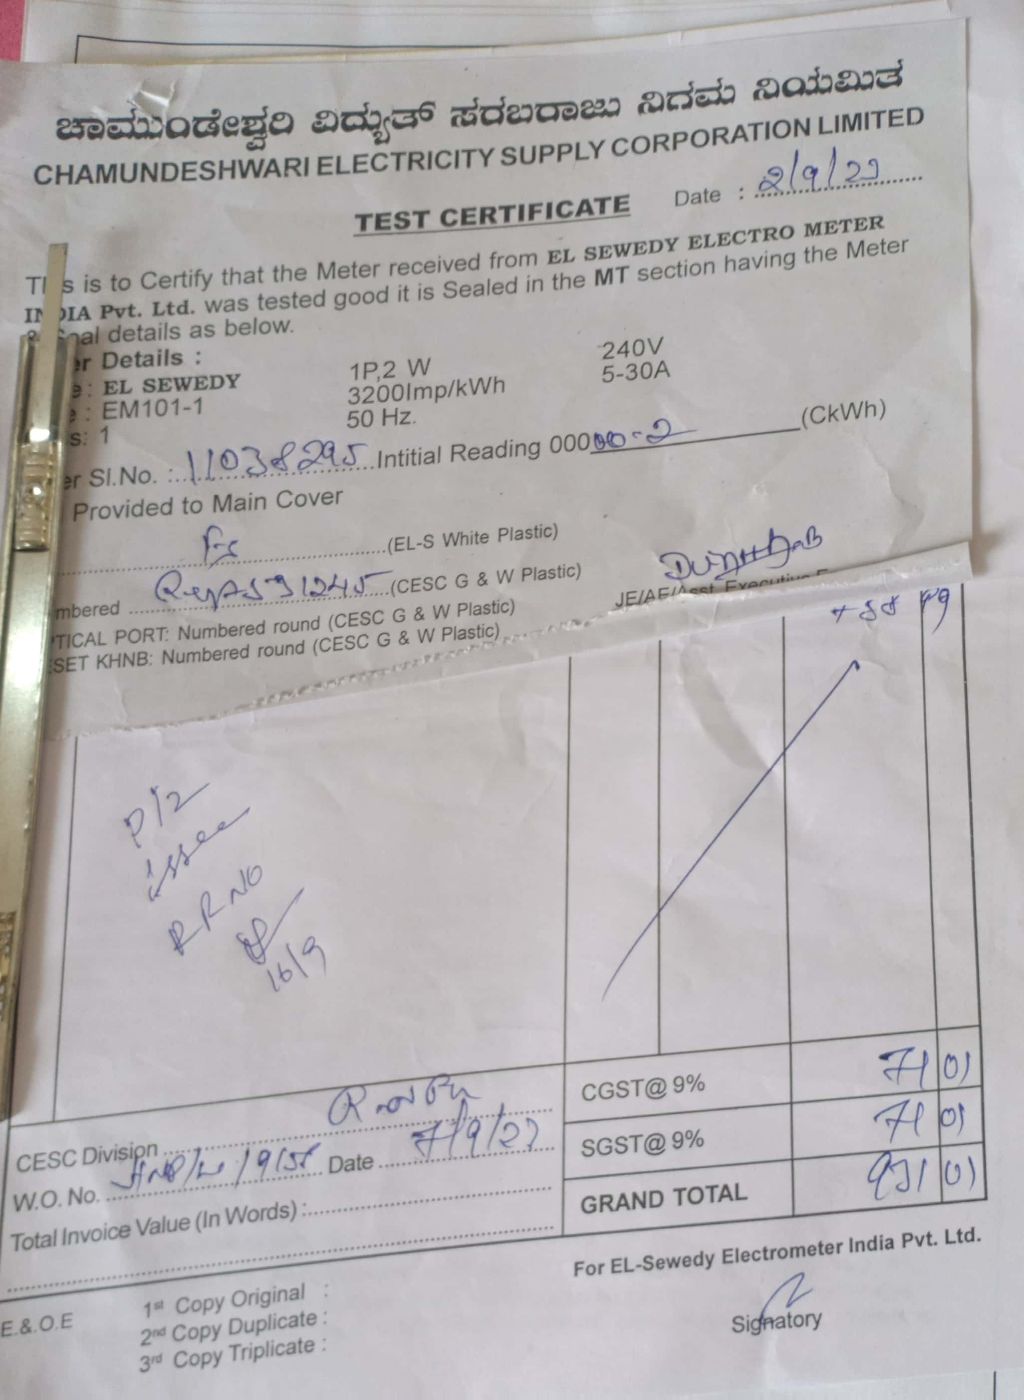 ಚಾಮುಂಡೇಶ್ವರಿ ವಿದ್ಯುತ್ ಸರಬರಾಜು ನಿಗಮ ನಿಯಮಿತ
CHAMUNDESHWARI ELECTRICITY SUPPLY CORPORATION LIMITED
TEST CERTIFICATE Date : 2/9/23
is to Certify that the Meter received from EL SEWEDY ELECTRO METER
Pvt. Ltd. was tested good it is Sealed in the MT section having the Meter
details as below.
Details :
: EL SEWEDY 1P,2 W 240V
: EM101-1 3200Imp/kWh 5-30A
: 1 50 Hz.
Sl.No. : 11038295 Intitial Reading 00000-2 (CkWh)
Provided to Main Cover
(EL-S White Plastic)
(CESC G & W Plastic)
PORT: Numbered round (CESC G & W Plastic)
KHNB: Numbered round (CESC G & W Plastic)
JE/AE/Asst. Executive
P/2
issue
RR NO
16/9
CGST@ 9% 71 01
SGST@ 9% 71 01
GRAND TOTAL 931 01
CESC Division
W.O. No. Date 7/9/23
Total Invoice Value (In Words) :
For EL-Sewedy Electrometer India Pvt. Ltd.
Signatory
E.&.O.E
1st Copy Original :
2nd Copy Duplicate :
3rd Copy Triplicate :